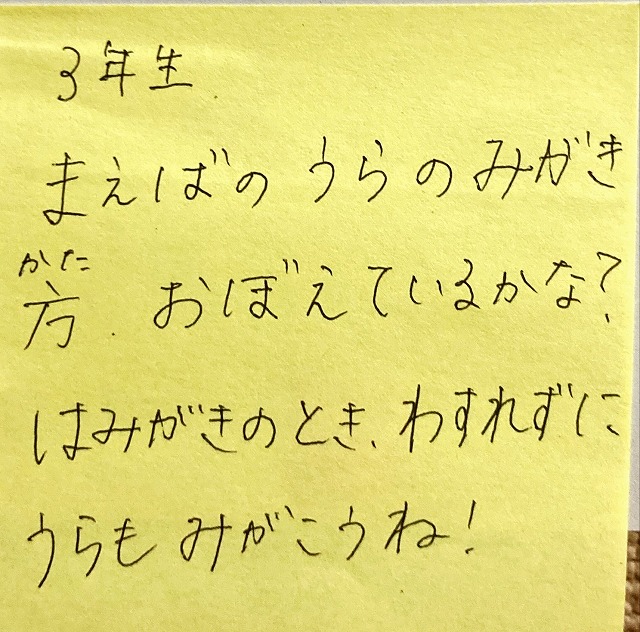 3年生
まえばのうらのみがき
かた
方 おぼえているかな?
はみがきのとき、わすれずに
うらもみがこうね!